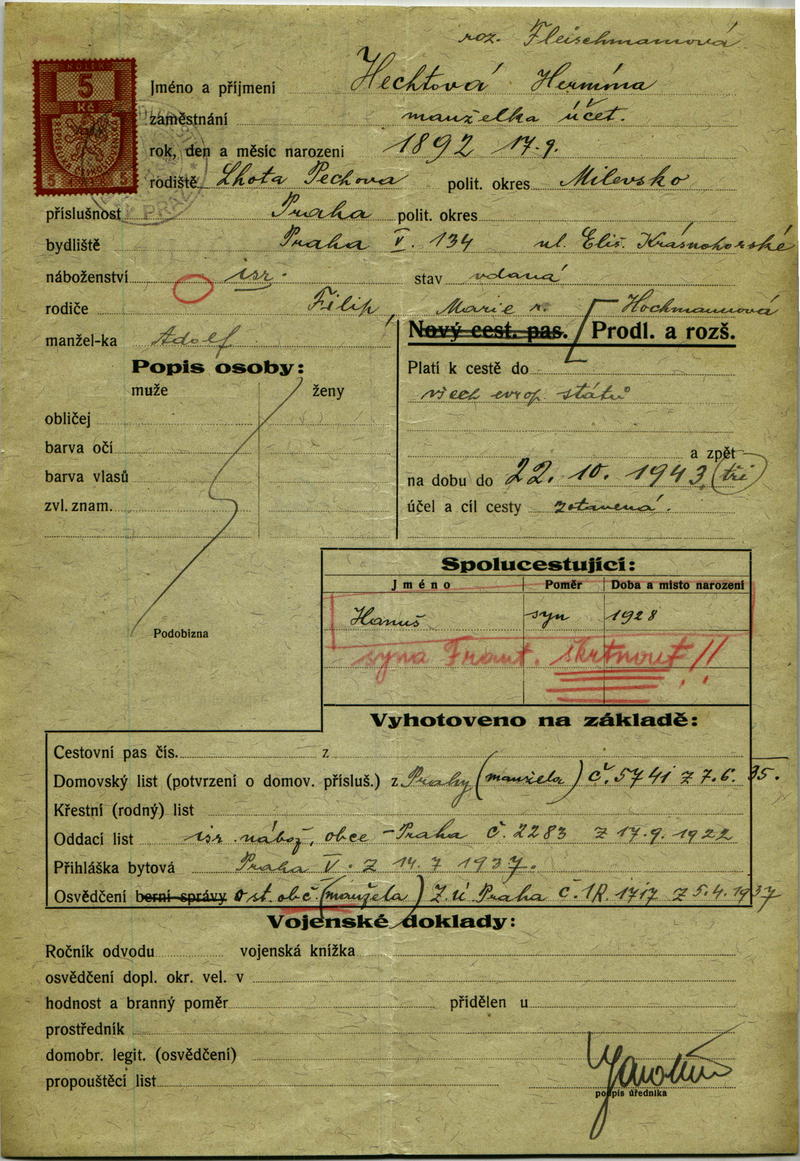 roz. Fleischmannová
5
Kč
5 5
Jméno a příjmení Hechtová Hermína
zaměstnání manželka účet.
rok, den a měsíc narození 1892 17.9.
rodiště Lhota Pechova polit. okres Milevsko
příslušnost Praha polit. okres
bydliště Praha V. 134 ul. Eliš. Krásnohorské
náboženství isr. stav vdaná
rodiče Filip, Marie r. Hochmannová
manžel-ka Adolf
Nový cest. pas. Prodl. a rozš.
Popis osoby:
muže ženy
obličej
barva očí
barva vlasů
zvl. znam.
Podobizna
Platí k cestě do
všech evrop. států
a zpět
na dobu do 22. 10. 1943 (tři)
účel a cíl cesty zotavená.
Spolucestující:
Jméno Poměr Doba a místo narození
Hanuš syn 1928
syna Frant. škrtnout!!
Vyhotoveno na základě:
Cestovní pas čís. z
Domovský list (potvrzení o domov. přísluš.) z Prahy (manžela) č. 5741 z 7.6. 35.
Křestní (rodný) list
Oddací list isr. nábož. obce Praha č. 2283 z 17.9. 1922
Přihláška bytová Praha V. z 14. 7 1937.
Osvědčení berní správy o st. obč. (manžela) Z. ú Praha č. 1R. 1717 z 5.4. 1937
Vojenské doklady:
Ročník odvodu vojenská knížka
osvědčení dopl. okr. vel. v
hodnost a branný poměr přidělen u
prostředník
domobr. legit. (osvědčení)
propouštěcí list
podpis úředníka